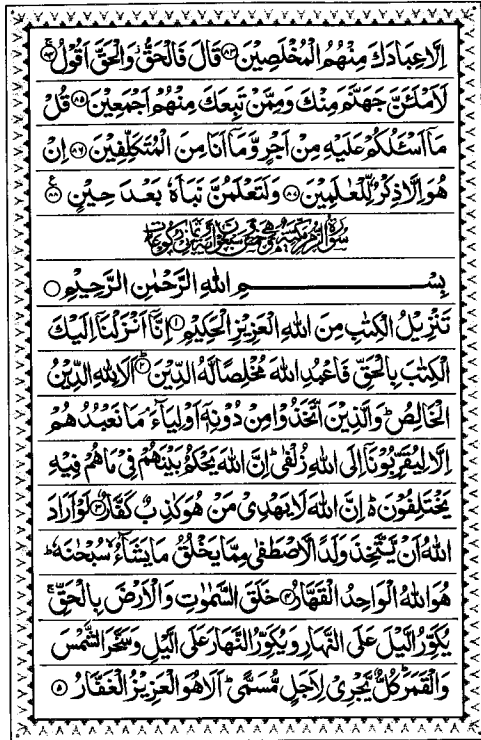 اِلَّا عِبَادَكَ مِنْهُمُ الْمُخْلَصِيْنَ ﴿۸۳﴾ قَالَ فَالْحَقُّ وَالْحَقَّ اَقُوْلُ ﴿۸۴﴾
لَاَمْلَئَنَّ جَهَنَّمَ مِنْكَ وَمِمَّنْ تَبِعَكَ مِنْهُمْ اَجْمَعِيْنَ ﴿۸۵﴾ قُلْ
مَا اَسْـَٔلُكُمْ عَلَيْهِ مِنْ اَجْرٍ وَّمَا اَنَا مِنَ الْمُتَكَلِّفِيْنَ ﴿۸۶﴾ اِنْ
هُوَ اِلَّا ذِكْرٌ لِّلْعٰلَمِيْنَ ﴿۸۷﴾ وَلَتَعْلَمُنَّ نَبَاَهٗ بَعْدَ حِيْنٍ ﴿۸۸﴾
بِسْمِ اللهِ الرَّحْمٰنِ الرَّحِيْمِ
تَنْزِيْلُ الْكِتٰبِ مِنَ اللهِ الْعَزِيْزِ الْحَكِيْمِ ﴿۱﴾ اِنَّا اَنْزَلْنَا اِلَيْكَ
الْكِتٰبَ بِالْحَقِّ فَاعْبُدِ اللهَ مُخْلِصًا لَّهُ الدِّيْنَ ﴿۲﴾ اَلَا لِلهِ الدِّيْنُ
الْخَالِصُ ؕ وَالَّذِيْنَ اتَّخَذُوْا مِنْ دُوْنِهٖ اَوْلِيَآءَ ۘ مَا نَعْبُدُهُمْ
اِلَّا لِيُقَرِّبُوْنَا اِلَى اللهِ زُلْفٰى ؕ اِنَّ اللهَ يَحْكُمُ بَيْنَهُمْ فِيْ مَا هُمْ فِيْهِ
يَخْتَلِفُوْنَ ۬ؕ اِنَّ اللهَ لَا يَهْدِيْ مَنْ هُوَ كٰذِبٌ كَفَّارٌ ﴿۳﴾ لَوْ اَرَادَ
اللهُ اَنْ يَّتَّخِذَ وَلَدًا لَّاصْطَفٰى مِمَّا يَخْلُقُ مَا يَشَآءُ ۙ سُبْحٰنَهٗ ؕ
هُوَ اللهُ الْوَاحِدُ الْقَهَّارُ ﴿۴﴾ خَلَقَ السَّمٰوٰتِ وَالْاَرْضَ بِالْحَقِّ ۚ
يُكَوِّرُ الَّيْلَ عَلَى النَّهَارِ وَيُكَوِّرُ النَّهَارَ عَلَى الَّيْلِ وَسَخَّرَ الشَّمْسَ
وَالْقَمَرَ ؕ كُلٌّ يَّجْرِيْ لِاَجَلٍ مُّسَمًّى ؕ اَلَا هُوَ الْعَزِيْزُ الْغَفَّارُ ﴿۵﴾